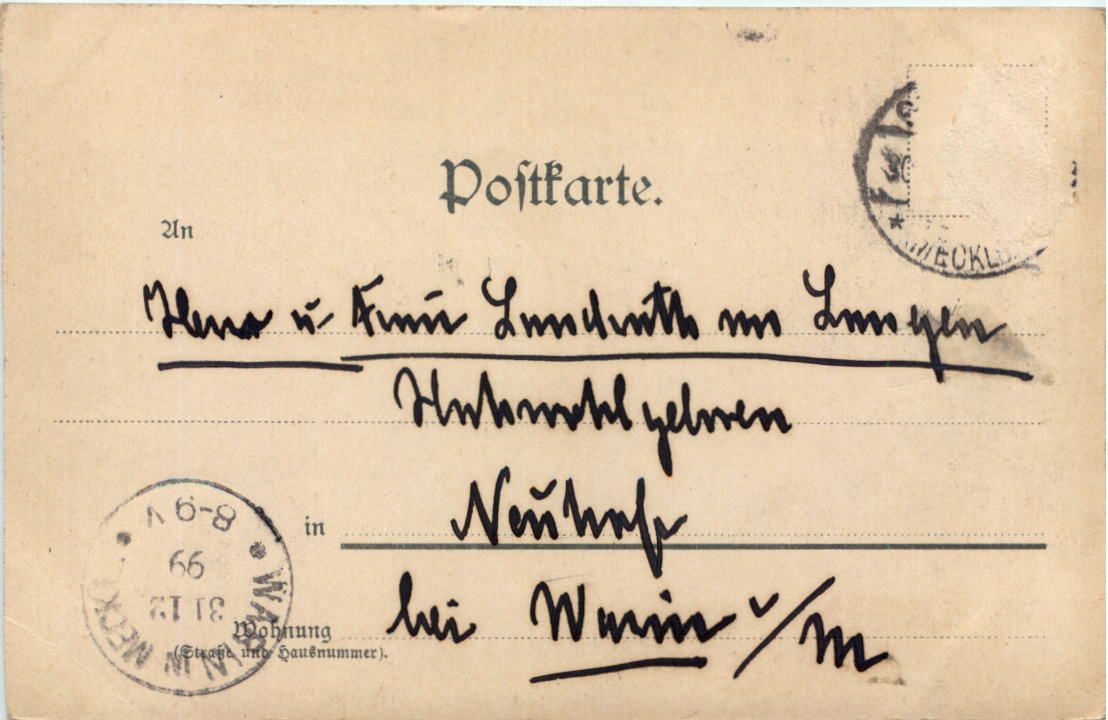 Postkarte.
An
Herrn u. Frau Landrath von Langen
Hochwohlgeboren
in Neuhof
bei Warin i/M
Wohnung
(Straße und Hausnummer).
MECKLB
WARIN IN MECKL
31 12
99
8-9 V